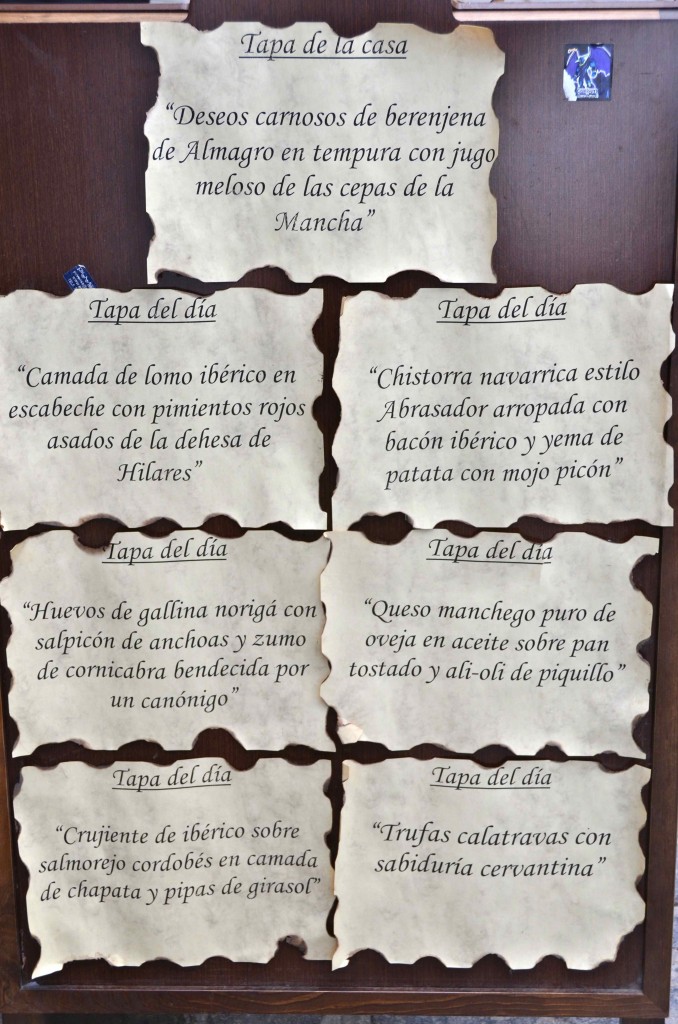 Tapa de la casa
“Deseos carnosos de berenjena
de Almagro en tempura con jugo
meloso de las cepas de la
Mancha”
Tapa del día
“Camada de lomo ibérico en
escabeche con pimientos rojos
asados de la dehesa de
Hilares”
Tapa del día
“Chistorra navarrica estilo
Abrasador arropada con
bacón ibérico y yema de
patata con mojo picón”
Tapa del día
“Huevos de gallina norigá con
salpicón de anchoas y zumo
de cornicabra bendecida por
un canónigo”
Tapa del día
“Queso manchego puro de
oveja en aceite sobre pan
tostado y ali-oli de piquillo”
Tapa del día
“Crujiente de ibérico sobre
salmorejo cordobés en camada
de chapata y pipas de girasol”
Tapa del día
“Trufas calatravas con
sabiduría cervantina”